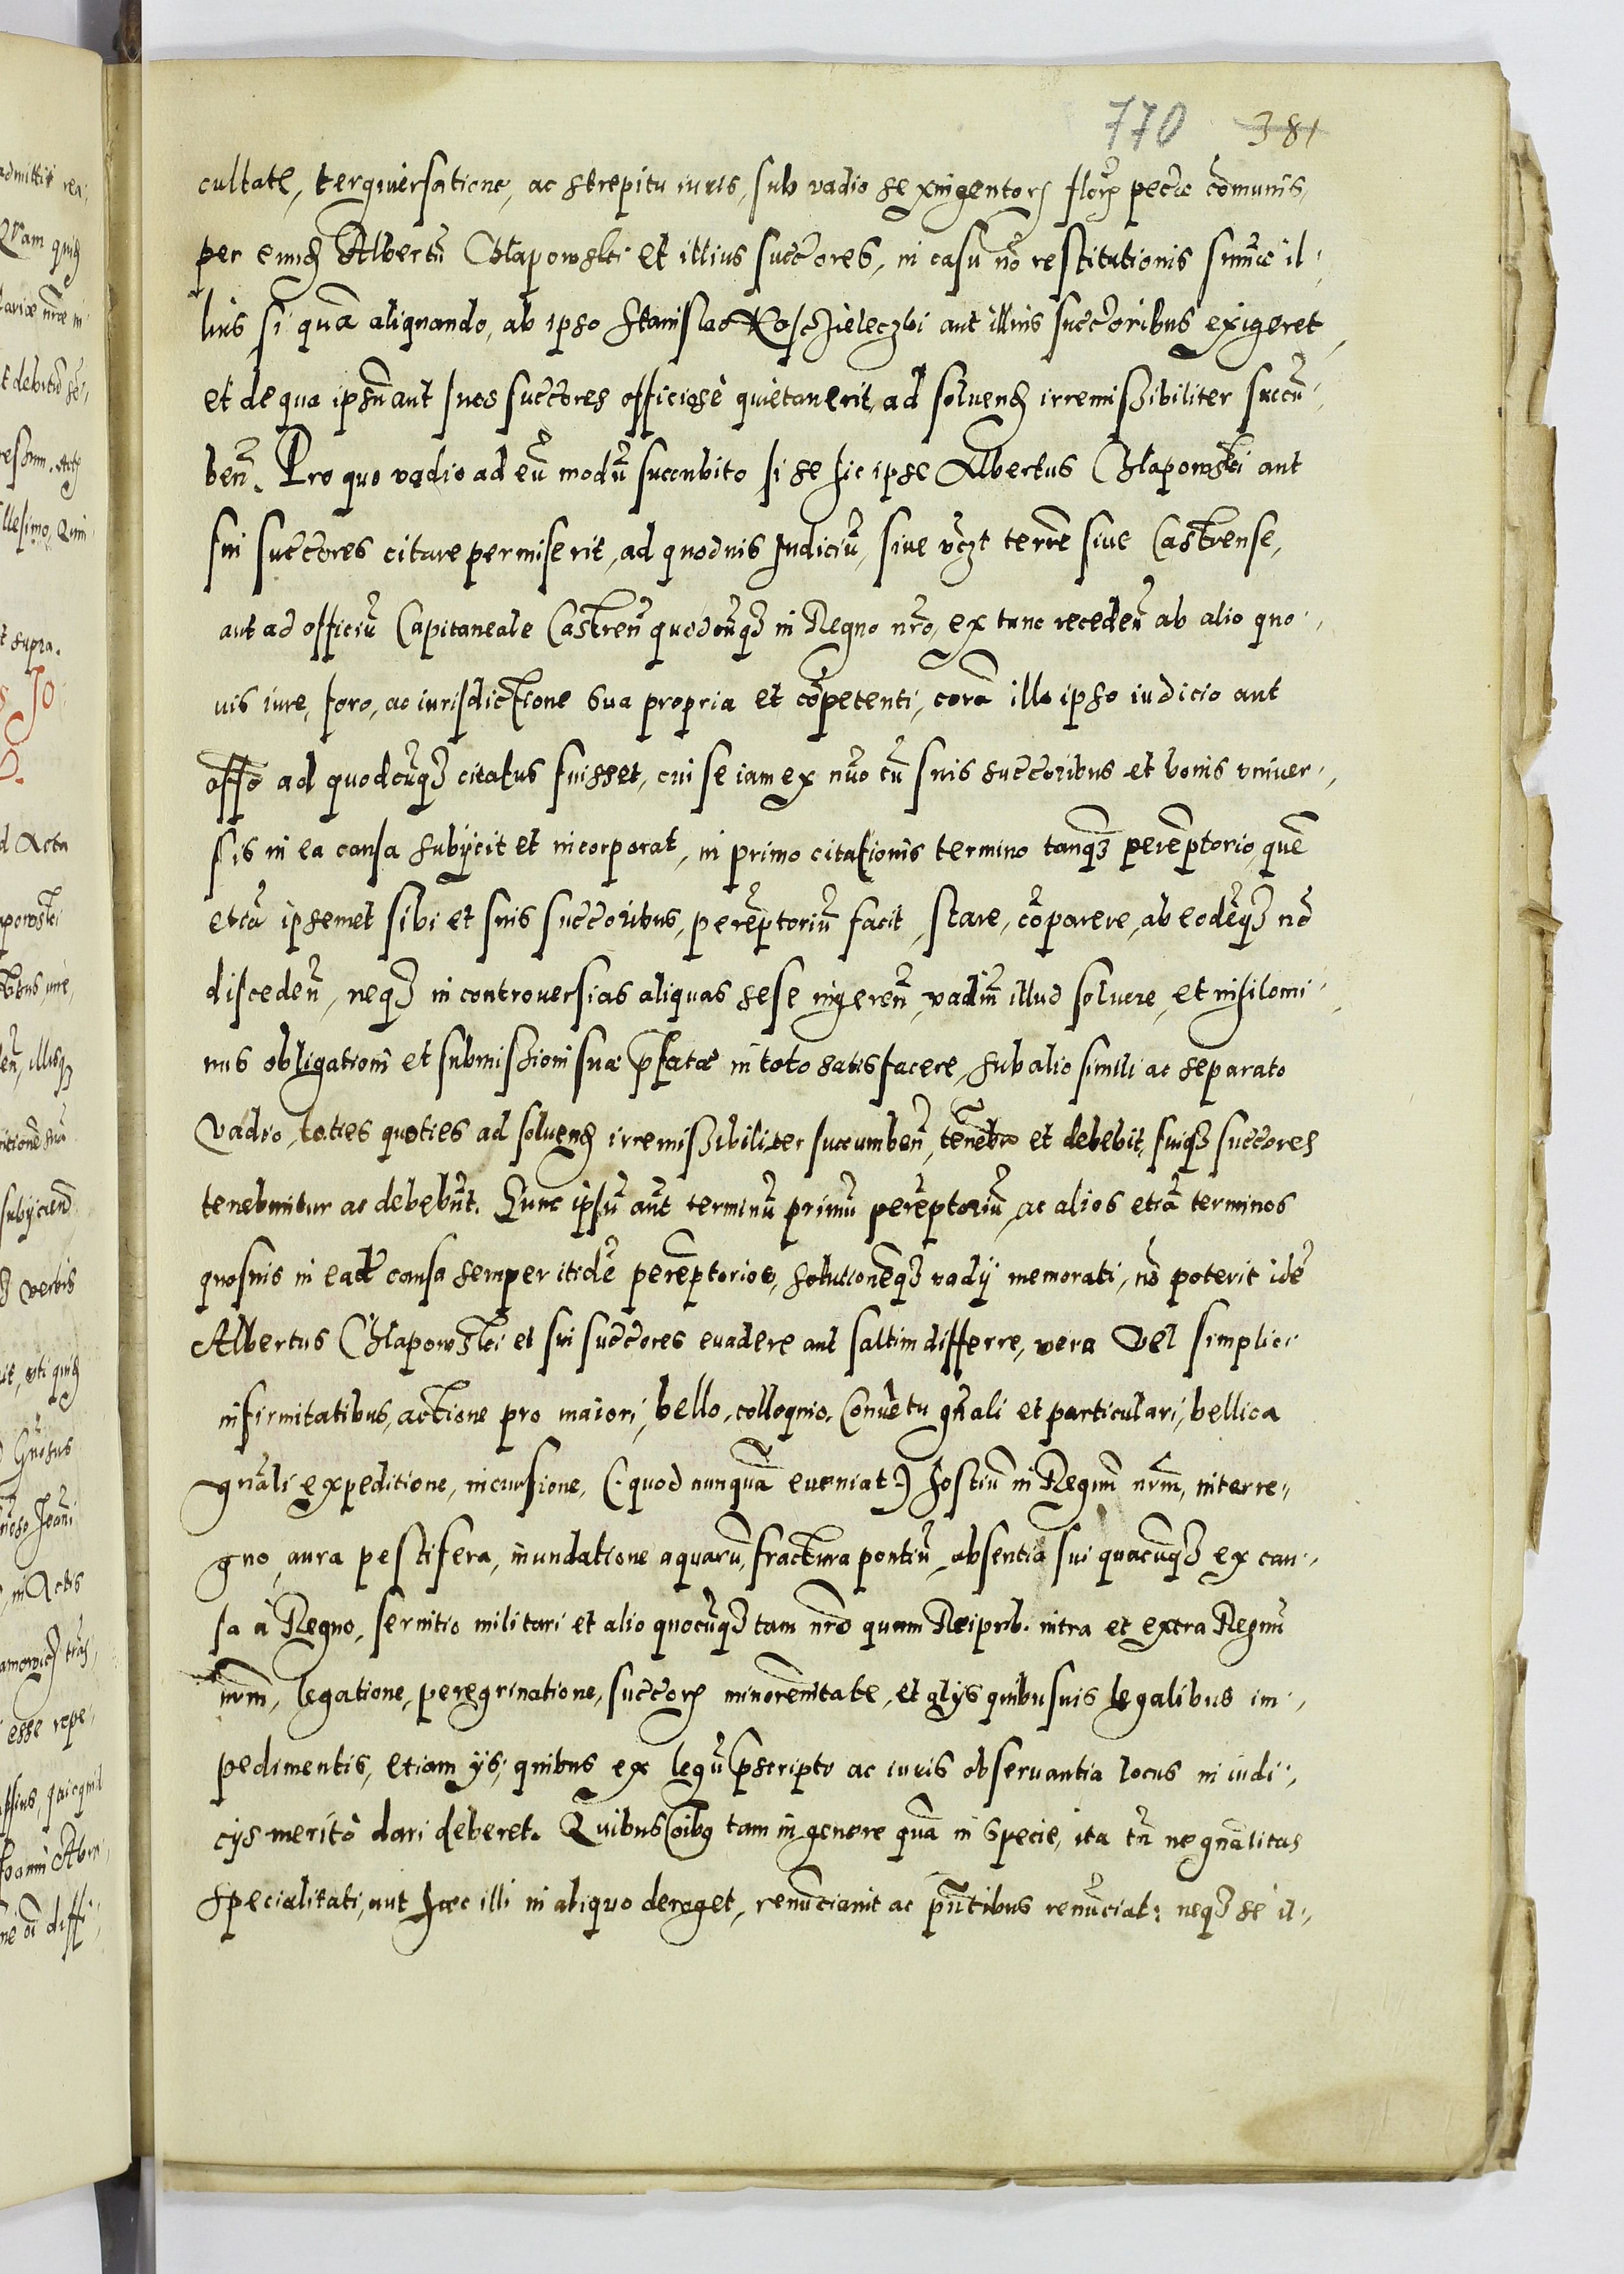 770 381
cultate, tergiuersatione, ac strepitu iuris, sub vadio sexingentorꝝ florꝝ pecūe cōmunis,
per eundꝫ Albertū Chłapowski et illius succores, in casu nō restitutionis summæ il-
lius, si quā aliquando, ab ipso Stanislao Kosczieleczki aut illius succoribus exigeret
et de qua ipsum aut suos succores officiose quietauerit, ad soluendꝫ irremissibiliter succū-
ben̄. Pro quo vadio ad eū modū succubito si se hic ipse Albertus Chłapowski aut
sui succores citare permiserit, ad quoduis Iudiciū, siue vꝫt terrē siue Castrense,
aut ad officiū Capitaneale Castren̄ quodcūqꝫ in Regno nr̄o, ex tunc receden̄ ab alio quo-
uis iure, foro, ac iurisdictione sua propria et cōpetenti, corā illo ipso iudicio aut
offō ad quodcūqꝫ citatus fuisset, cui se iam ex nūo cū suis succoribus et bonis vniuer-
sis in ea causa subijcit et incorporat, in primo citationis termino tanqꝫ perēptorio, quē
etiā ipsemet sibi et suis succoribus, perēptoriū facit, stare, cōparere, ab eodēqꝫ nō
disceden̄, neqꝫ in controuersias aliquas sese ingeren̄, vadiū illud soluere, et nihilomi-
nus obligationi et submissioni suæ p̄fatæ in toto satisfacere, sub alio simili ac separato
vadio, toties quoties ad soluendꝫ irremissibiliter succumben̄, tenebr̄ et debebit, suiqꝫ succores
tenebuntur ac debebūt. Hunc ipsū aūt terminū primū perēptoriū, ac alios etiā terminos
quosuis in eadē causa semper itidē perēptorios, solutionēqꝫ vadij memorati, nō poterit idē
Albertus Chłapowski et sui succores euadere aut saltim differre, vera vel simplici
infirmitatibus, actione pro maiori, bello, colloquio, Conuētu gn̄ali et particulari, bellica
gn̄ali expeditione, incursione, (quod nunquā eueniat) hostiū in Regnū nr̄m, interre-
gno, aura pestifera, inundatione aquarū, fractura pontiū, absentia sui quacūqꝫ ex cau-
sa à Regno, seruitio militari et alio quocūqꝫ tam nr̄o quam Reipub. intra et extra Regnū
nr̄m, legatione, peregrinatione, succorꝝ minorēnitate, et alijs quibusuis legalibus im-
pedimentis, etiam ijs, quibus ex legū p̄scripto ac iuris obseruantia locus in iudi-
cijs merito dari deberet. Quibus oībꝰ tam in genere quā in specie, ita tn̄ ne gn̄alitas
specialitati, aut hæc illi in aliquo deroget, renunciauit ac pn̄tibus renūciat: neqꝫ se il-